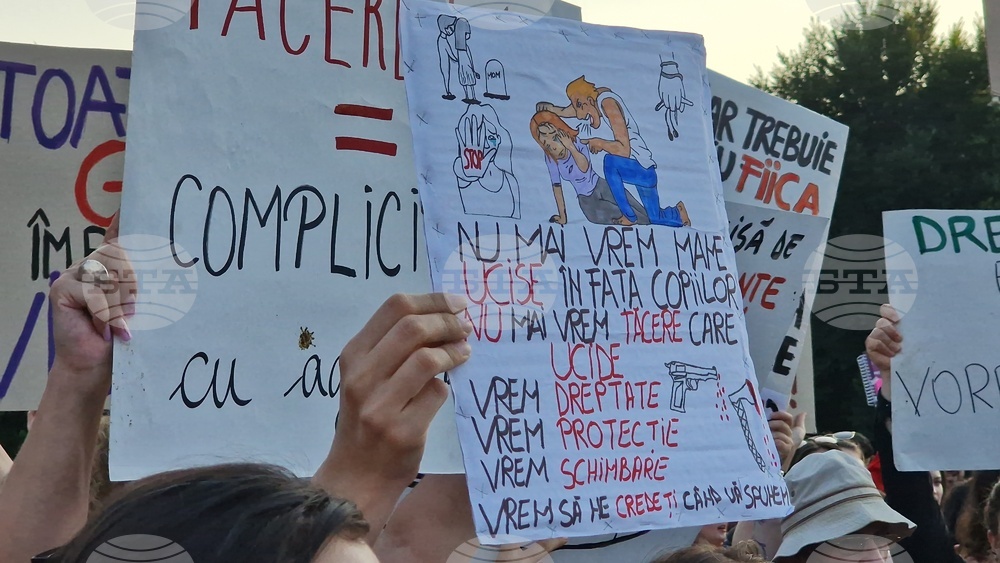 TOATE
ÎMP
TĂCERE
=
COMPLICI
cu ag
MOM
STOP
NU MAI VREM MAME
UCISE ÎN FAȚA COPIILOR
NU MAI VREM TĂCERE CARE
UCIDE
VREM DREPTATE
VREM PROTECȚIE
VREM SCHIMBARE
VREM SĂ NE CREDEȚI CÂND VĂ SPUNEM
AR TREBUIE
FIICA
ISĂ DE
NTE
E
DRE
VOR
STA
STA
STA